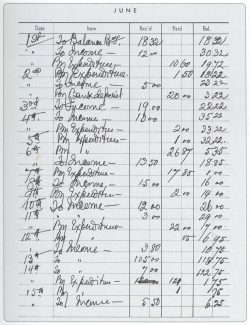 JUNE
Date Item Rec'd Paid Bal.
1st To Balance B/f. 18.32 18.32
" To Income — 12 00 30.32
" By Expenditure 10 60 19.72
2nd By Expenditure. 1 50 18.22
" To Income — 5 00
" By Bank deposit 20 00 3.22
3rd To Income — 19 00 22.22
4th To Income — 13 00 35.22
" By Expenditure — 2 00 33.22
5th By Expenditure — 1 00 32.22
6th By " 26 87 5.35
" To Income — 13 50 18.85
7th By Expenditure — 17 85 1.00
8th To Income. — 15 00 16.00
9th By Expenditure — 2 00 14.00
10th To Income — 12 00 26.00
11th " " 3 00 29.00
" By Expenditure — 22 00
12th By "
" To Income — 3 80
13th To " 105 00
14th To " 7 00
" By Expenditure —
15th By " 1 .75
" To Income — 5 50 6.25